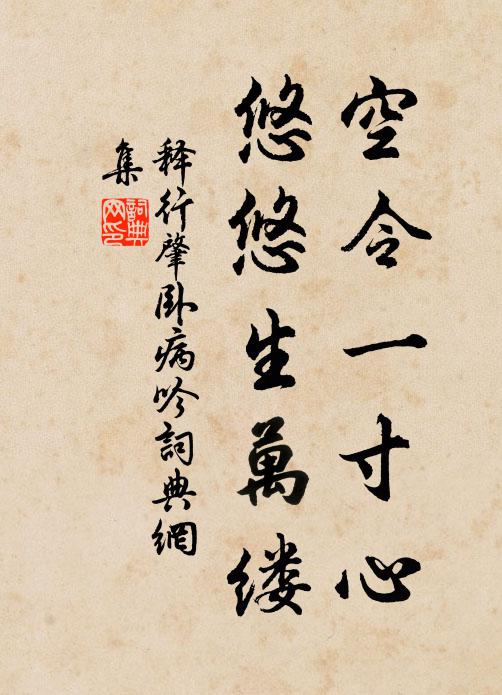 空令一寸心
悠悠生萬缕
释行肇卧病吟詞典網
集
詞典
网印